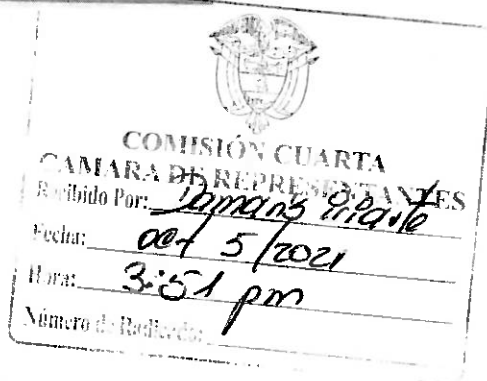 COMISIÓN CUARTA
CAMARA DE REPRESENTANTES
Recibido Por: Damaris Iriarte
Fecha: oct 5/2021
Hora: 3:51 pm
Número de Radicado: